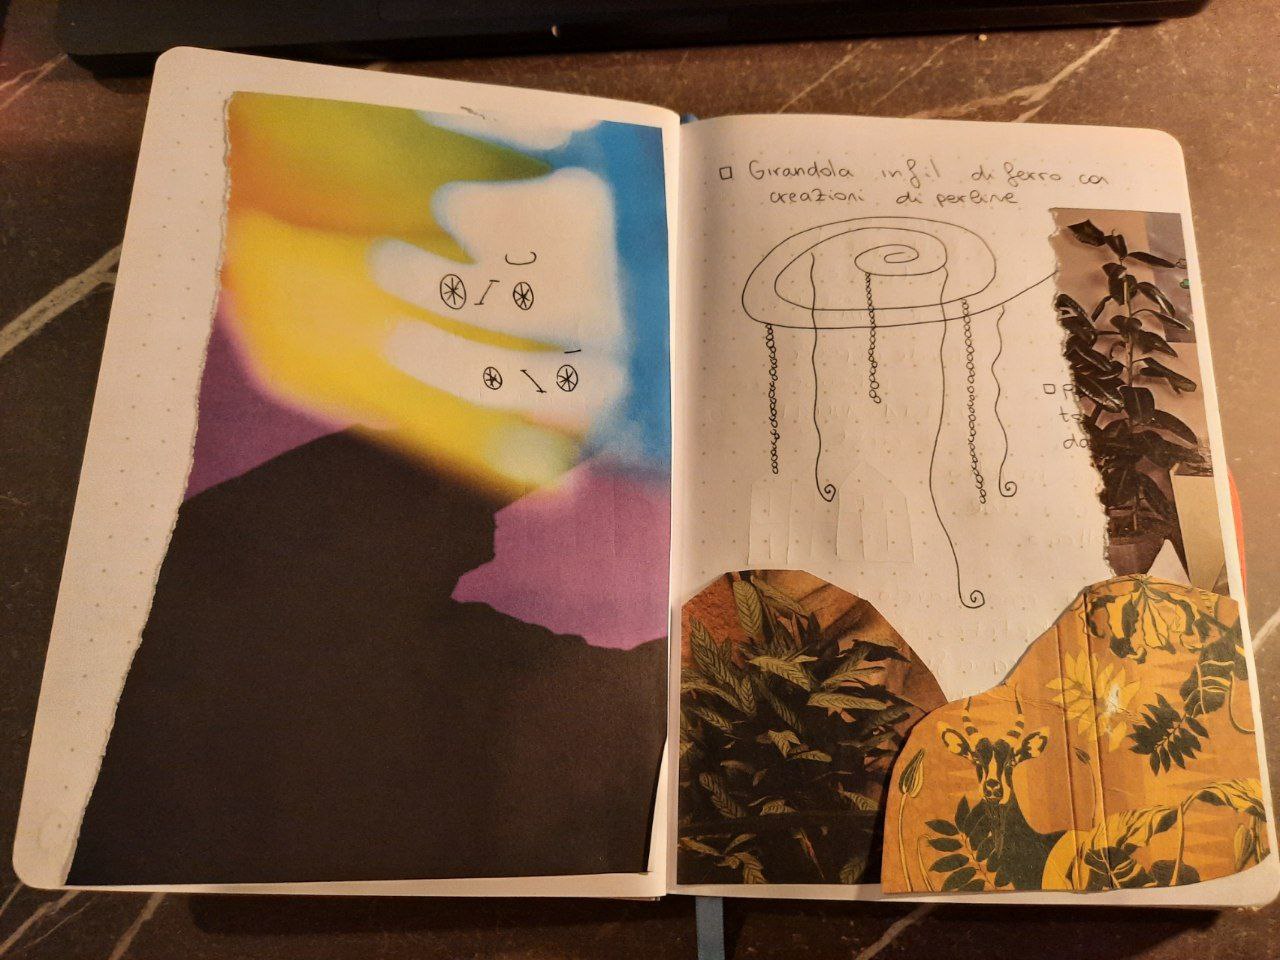 Girandola in fil di ferro con
creazioni di perline